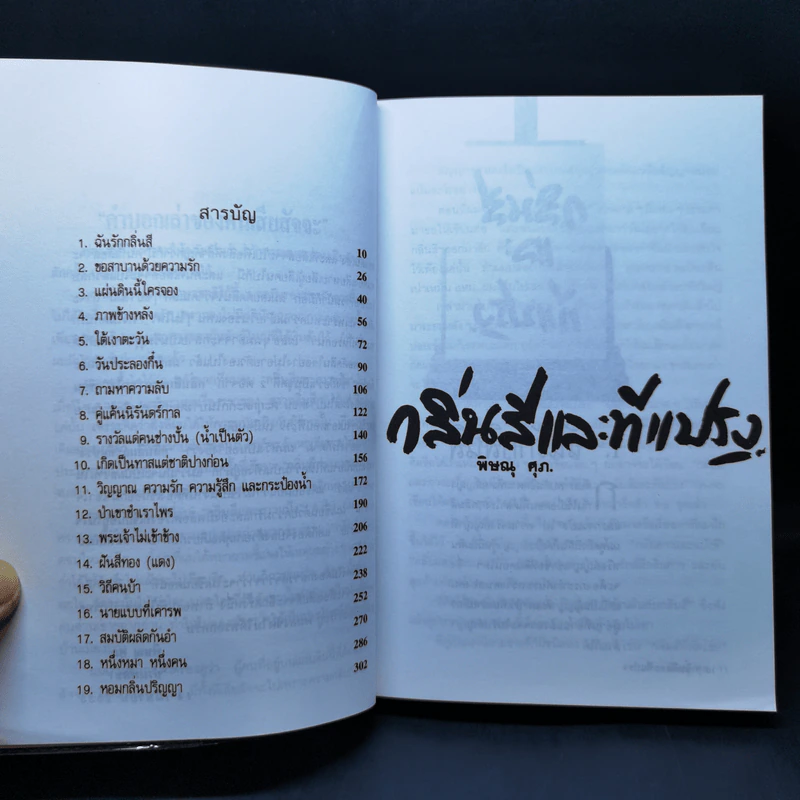 สารบัญ
1. ฉันรักกลิ่นสี 10
2. ขอสาบานด้วยความรัก 26
3. แผ่นดินนี้ใครจอง 40
4. ภาพข้างหลัง 56
5. ใต้เงาตะวัน 72
6. วันประลองกึ๋น 90
7. ถามหาความลับ 106
8. คู่แค้นนิรันดร์กาล 122
9. รางวัลแด่คนช่างปั้น (น้ำเป็นตัว) 140
10. เกิดเป็นทาสแต่ชาติปางก่อน 156
11. วิญญาณ ความรัก ความรู้สึก และกระป๋องน้ำ 172
12. ป่าเขาชำเราไพร 190
13. พระเจ้าไม่เข้าข้าง 206
14. ฝันสีทอง (แดง) 222
15. วิถีคนบ้า 238
16. นายแบบที่เคารพ 252
17. สมบัติผลัดกันอำ 270
18. หนึ่งหมา หนึ่งคน 286
19. หอมกลิ่นปริญญา 302
กลิ่นสีและทีแปรง
พิษณุ ศุภ.